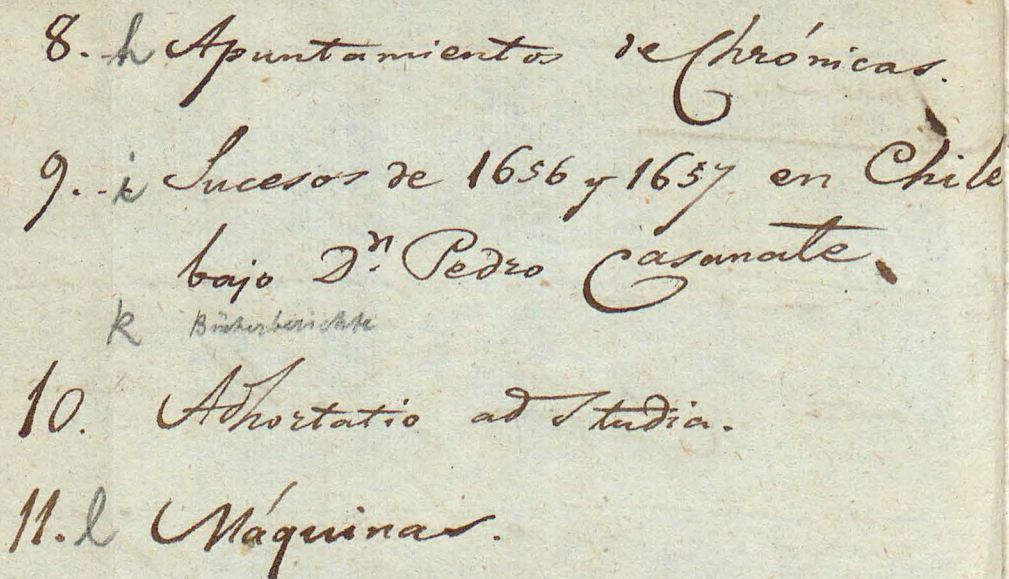 8. h Apuntamientos de Chrónicas.
9. i Sucesos de 1656 y 1657 en Chile
bajo Dn. Pedro Casanate.
k Bücherberichte
10. Adhortatio ad Studia.
11. l Máquinas.